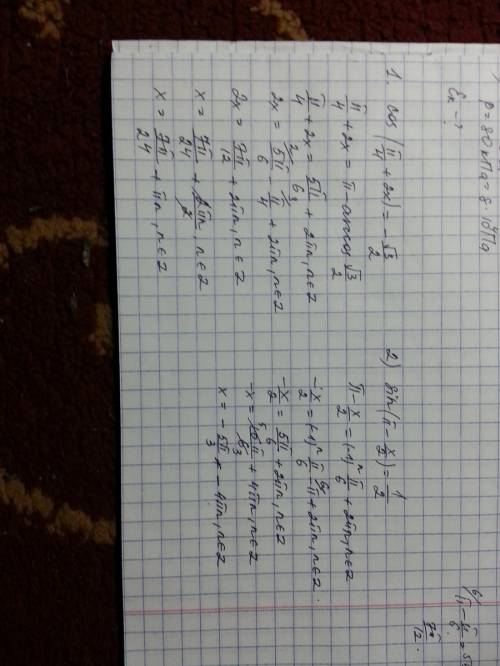 p = 80 кПа = 8·10⁴Па
Eк - ?
1. cos(π/4 + 2x) = -√3/2
π/4 + 2x = π - arccos √3/2
π/4 + 2x = 5π/6 + 2πn, n∈Z
2x = 5π/6 - π/4 + 2πn, n∈Z
2x = 7π/12 + 2πn, n∈Z
x = 7π/24 + 2πn/2, n∈Z
x = 7π/24 + πn, n∈Z
2) sin(π - x/2) = 1/2
π - x/2 = (-1)ⁿ π/6 + 2πn, n∈Z
-x/2 = (-1)ⁿ π/6 - π + 2πn, n∈Z.
-x/2 = 5π/6 + 2πn, n∈Z
-x = 10π/6 + 4πn, n∈Z
x = -5π/3 - 4πn, n∈Z